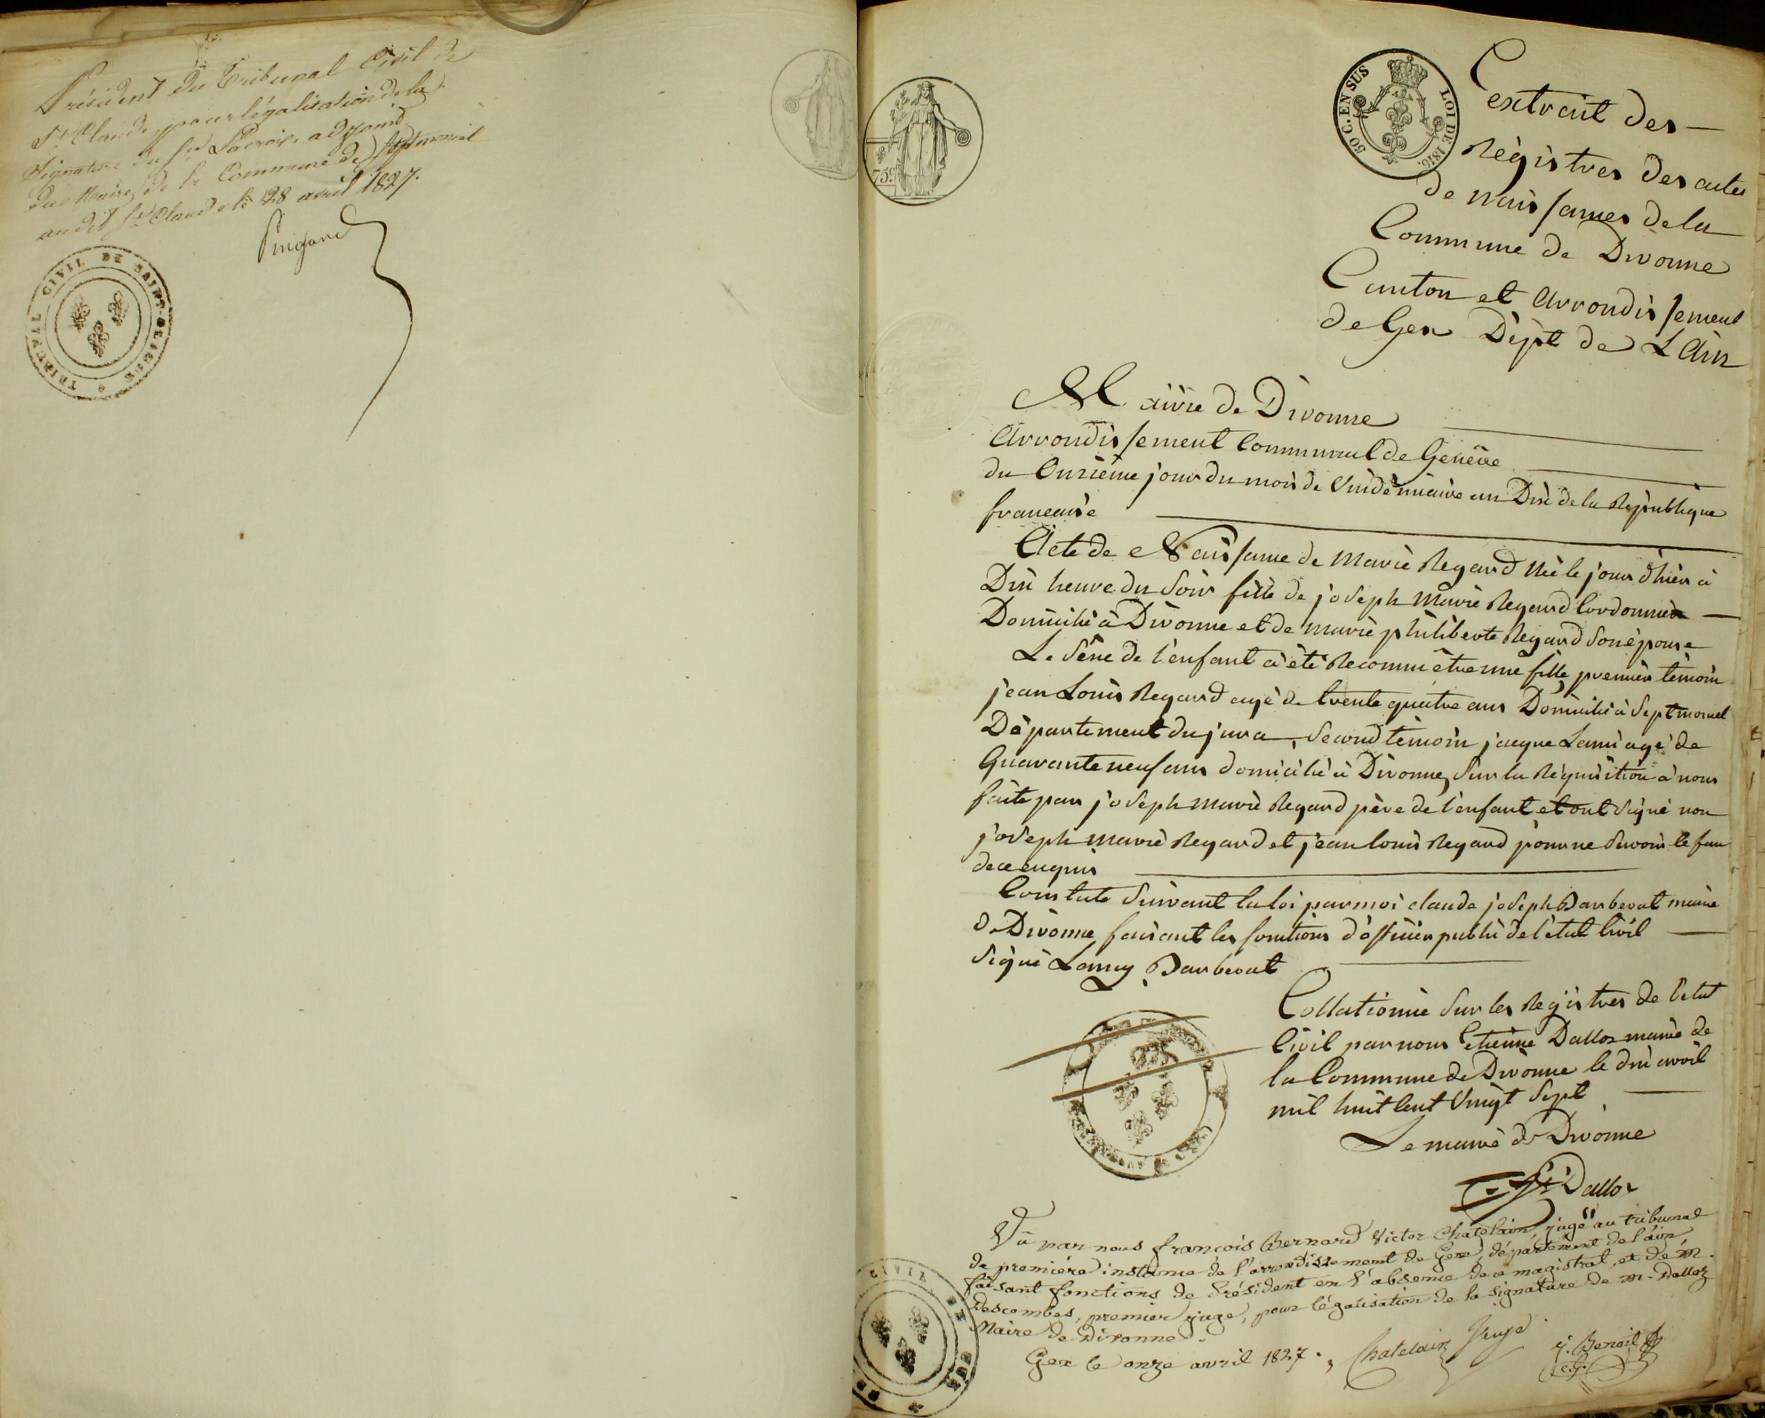 Président du Tribunal Civil de
St. Claude, pour légalisation de la
Signature du Sr. Lacroix, adjoint
du Maire de la Commune de Septmoncel
au dit St. Claude le 28 avril 1827.
TRIBUNAL CIVIL DE SAINT-CLAUDE
75c
50 C. EN SUS
LOI DE 1816.
Extrait des
Régistres des actes
de naissances de la
Commune de Divonne
Canton et Arrondissement
de Gex Dépt de L'Ain
Mairie de Divonne
Arrondissement Communal de Genève
du Onzième jour du mois de Vindémiaire an Dix de la République
francaise
Acte de Naissance de Marie Regard née le jour d'hier à
Dix heure du Soir fille de joseph Marie Regard Cordonnier
Domicilié à Divonne et de Marie philiberte Regard Son épouse
Le Sexe de l'enfant à été Reconnu être une fille premier témoin
jean Louis Regard agé de trente quatre ans Domicilié à Septmoncel
Département du jura, Second témoin jacque Lami agé de
Quarante neuf ans domicilié à Divonne, Sur la Réquisition à nous
faite par joseph Marie Regard père de l'enfant et ont Signé non
joseph Marie Regard et jean Louis Regard pour ne Savoir le faire
de ce enquis
Constaté Suivant la loi par moi claude joseph Barberat maire
de Divonne faisant les fonctions d'officier public de l'état Civil
Signé Lamy Barberat
Collationné Sur les Régistres de l'état
Civil par nous Etienne Dallos maire de
la Commune de Divonne le dix avril
mil huit Cent Vingt Sept
Le maire de Divonne
Et. Dallos
Vû par nous françois Bernard Victor Chatelain, juge au tribunal
de première instance de l'arrondissement de Gex, département de l'ain,
faisant fonctions de Président en l'absence de ce magistrat, et de M.
descombes, premier juge, pour légalisation de la signature de M. Dalloz
Maire de Divonne.
Gex le onze avril 1827.
Chatelain Juge
J. Benoit
CIVIL DE GEX